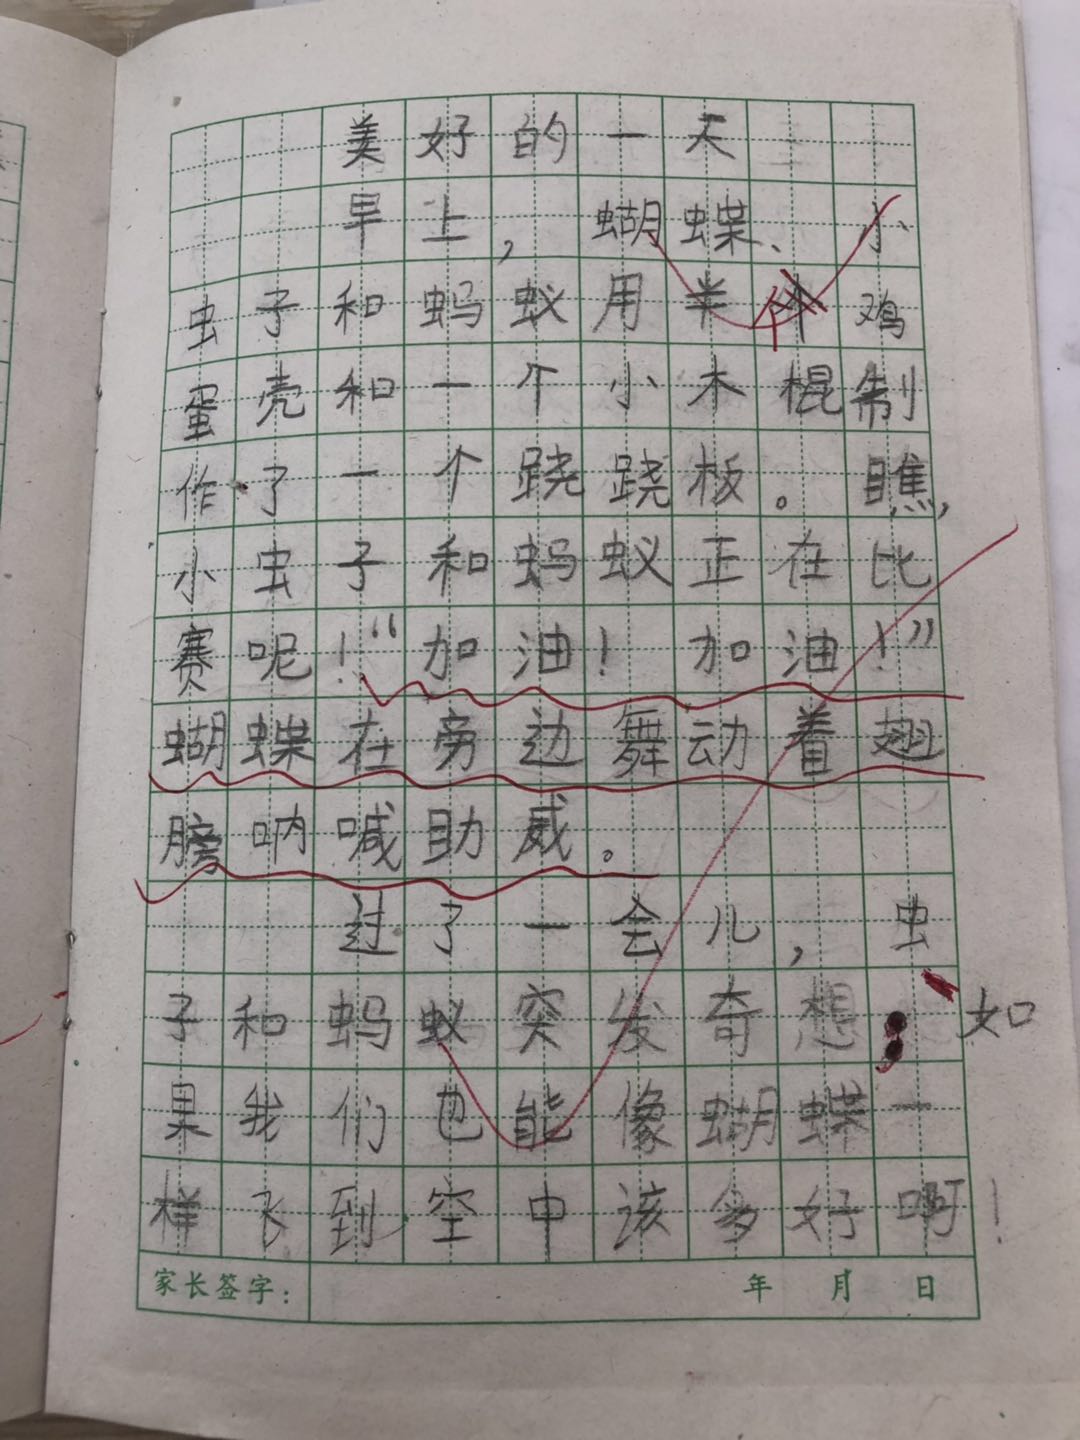 美好的一天
早上，蝴蝶、小
虫子和蚂蚁用半个鸡
蛋壳和一个小木棍制
作了一个跷跷板。瞧，
小虫子和蚂蚁正在比
赛呢！“加油！加油！”
蝴蝶在旁边舞动着翅
膀呐喊助威。
过了一会儿，虫
子和蚂蚁突发奇想：如
果我们也能像蝴蝶一
样飞到空中该多好啊！
家长签字： 年 月 日